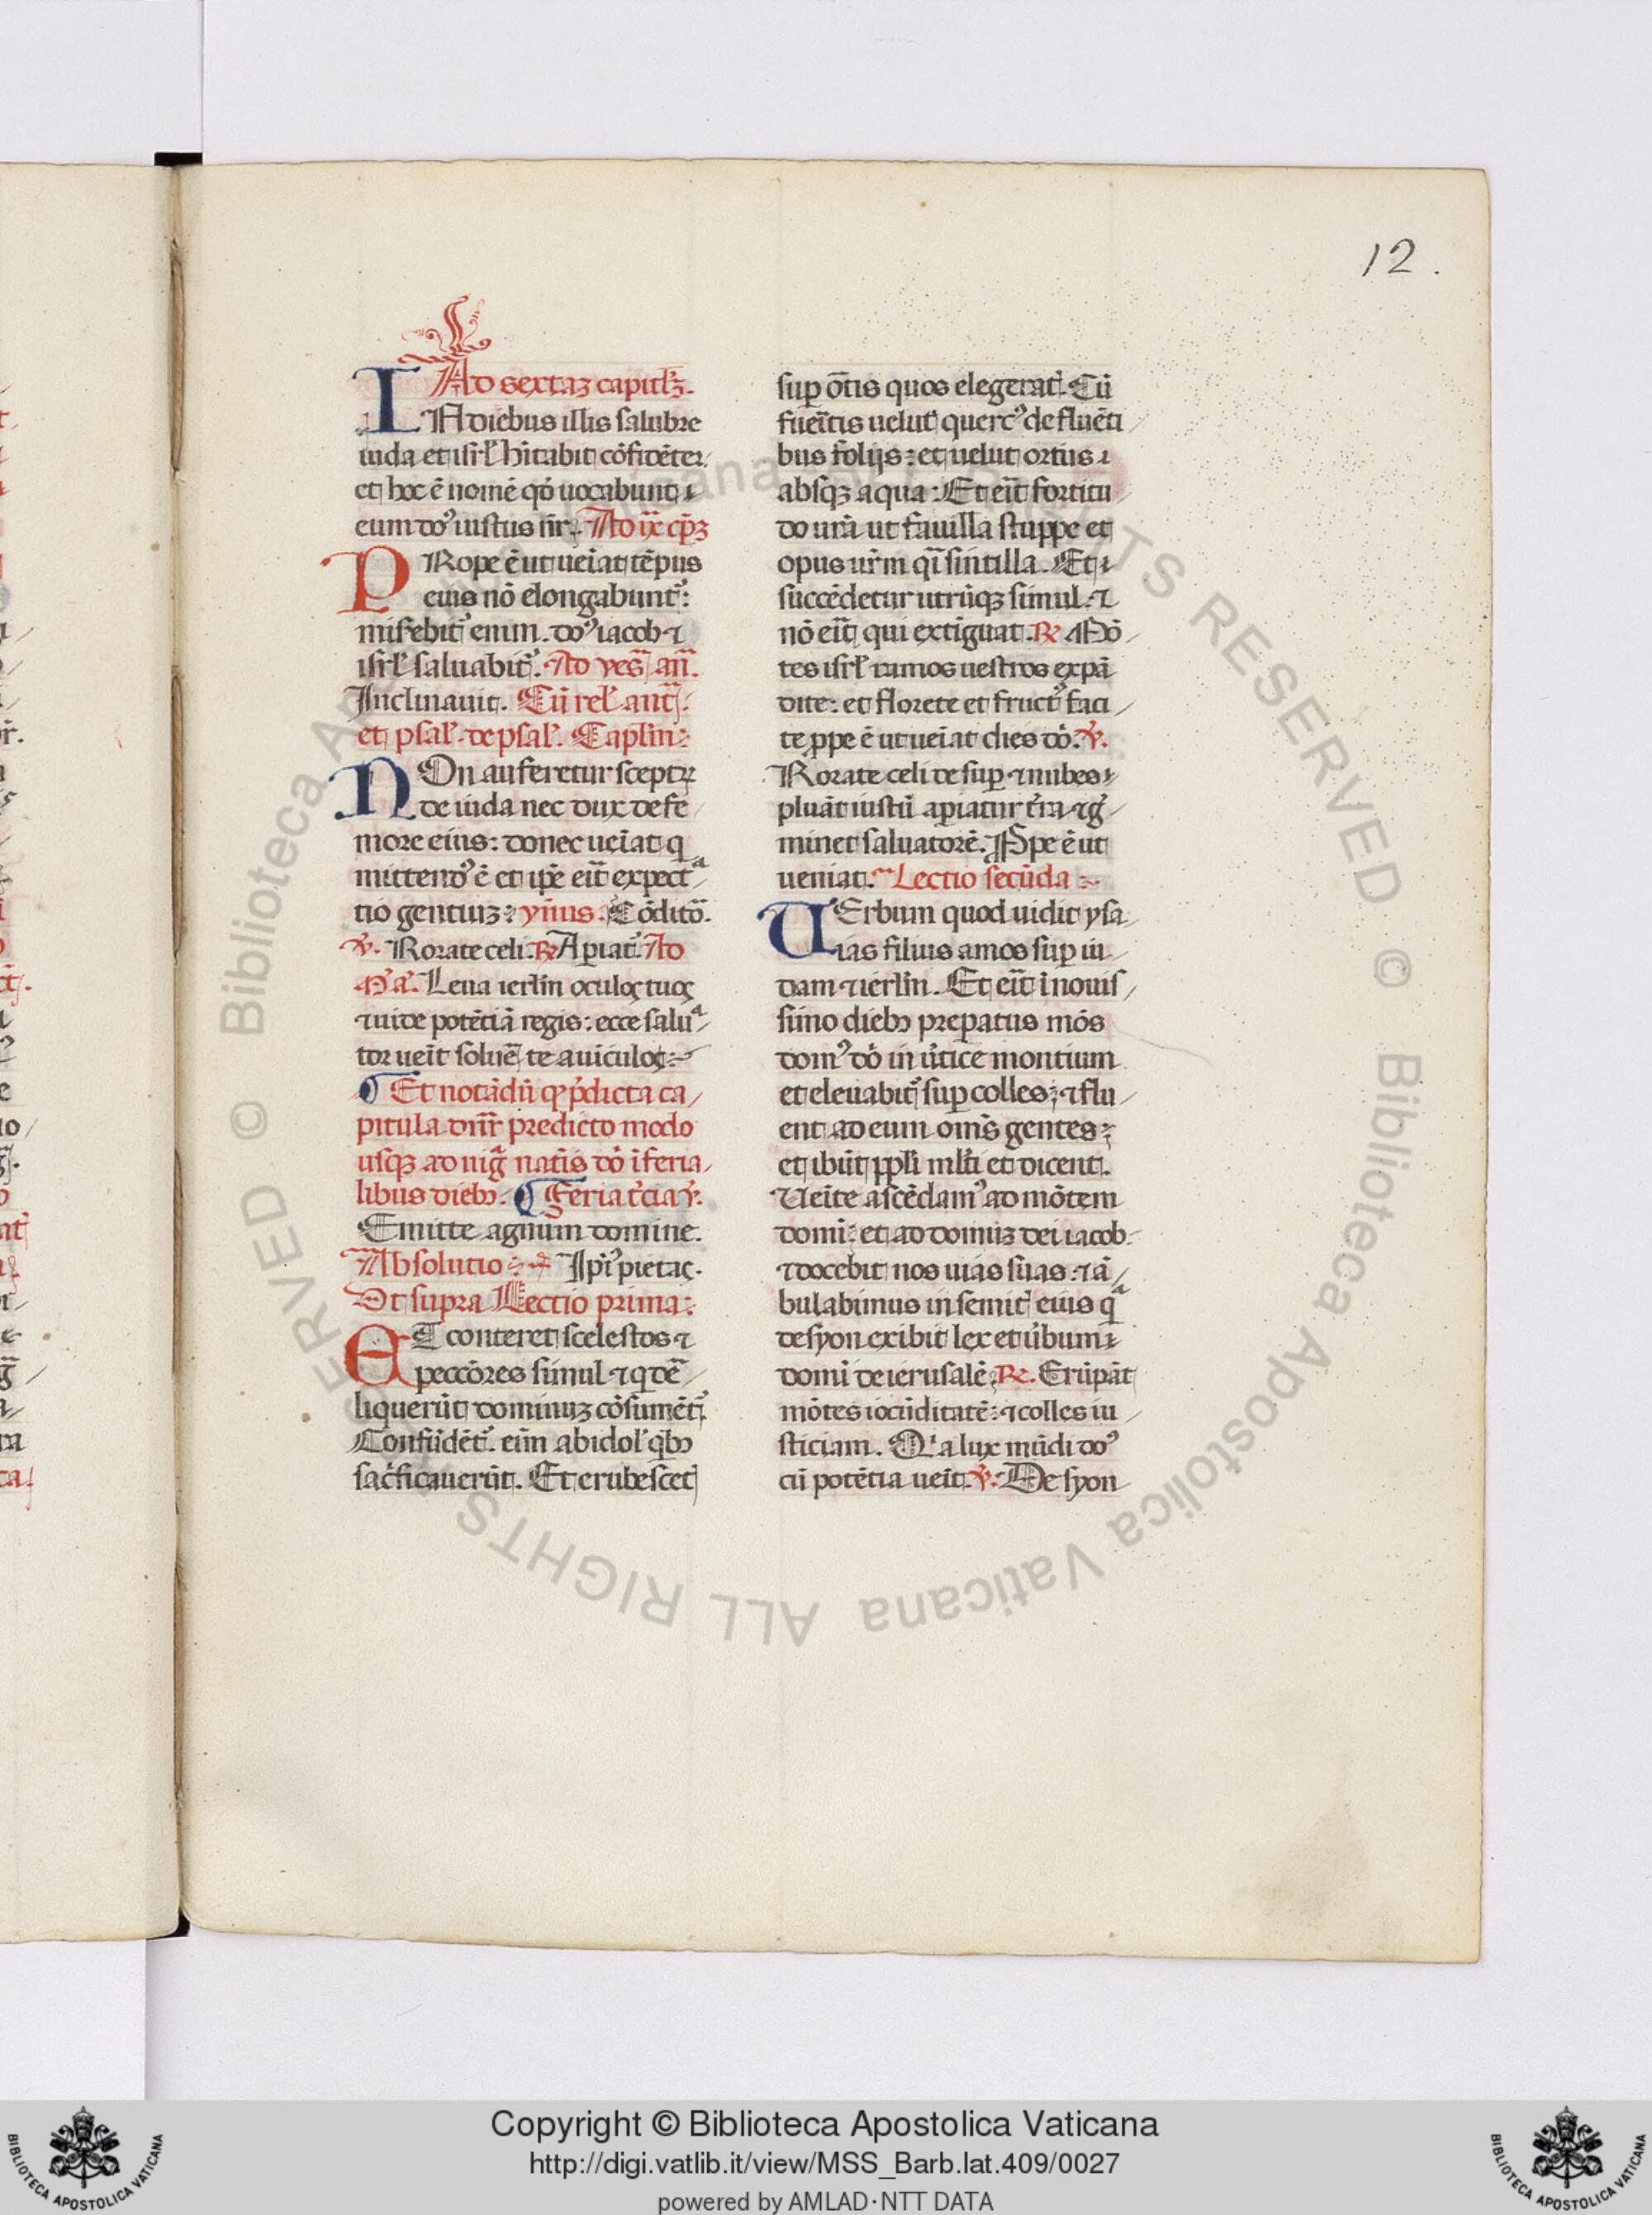 12.
Ad sextaz capitlz.
IN diebus illis saluabr
iuda et isrl' hitabit cōfidēter.
et hoc ē nomē qd' uocabunt
eum do' iustus nr. Ad ix cp̄z
PRope ē ut ueīat tēpus
eius nō elongabunt':
miserebit' enim. do' iacob ⁊
isrl' saluabit'. Ad ves̄ an̄.
Inclinauit. Cū rel' ant'.
et psal'. de psal'. Caplm:
NOn auferetur sceptꝝ
de iuda nec dux de fe
more eius: donec ueīat q
mittend' ē et ip̄e eīt expect
tio gentiuz: ymus. Cōditō.
℣. Rorate celi. ℟ Aperiat'. Ad
Leua ierl̄m oculos tuos
⁊ uide potētiā regis: ecce salu
tor ueīt soluē te a uiculos:
¶ Et notādū ꝙ p̄dicta ca
pitula dn̄r predicto modo
usqꝫ ad uiḡ natis dō ī feria
libus dieb. ¶ Feria t'cia ℣.
Emitte agnum domine.
Absolutio Ip̄i' pietas.
Ut supra Lectio prima:
ET conteret scelestos ⁊
peccōres simul ⁊ q dē
liquerūt dominuz cōsumēt'.
Confūdēt'. eīm ab idol' qb
sac'ficauerūt. Et erubescet
suꝑ ōtis quos elegerat'. Cū
fueītis uelut querc' de fluēti
bus folijs: et uelut ortus
absqꝫ aqua: Et eīt fortitu
do ur̄a ut fauilla stuppe et
opus ur̄m qi sintilla. Et
succēdetur utrūqꝫ simul. ⁊
nō eīt qui extīguat. ℟ Mō
tes isrl' ramos uestros expā
dite: et florete et fruct' faci
te ꝓpe ē ut ueīat dies dō. ℣.
Rorate celi desuꝑ ⁊ nubes
pluāt iustū apiatur t'ra ⁊ g'
minet saluatorē. Ꝓpe ē ut
ueniat. Lectio secūda
UErbum quod uidit ysa
ias filius amos suꝑ iu
dam ⁊ ierl̄m. Et eīt ī nouis
simo dieb preparatus mōs
dom' dō in u'tice montium
et eleuabit' suꝑ colles: ⁊ flu
ent ad eum omīs gentes:
et ibūt ppl̄i ml̄ti et dicent.
Ueīte ascēdam' ad mōtem
domī: et ad domuz dei iacob.
⁊ docebit nos uias suas. ⁊ ā
bulabimus in semit' eius q
de syon exibit lex et u'bum
domī de ierusalē. ℟. Erūpāt
mōtes iocūditatē: ⁊ colles iu
sticiam. Q'a lux mūdi do'
cū potētia ueīt. ℣. De syon
Copyright © Biblioteca Apostolica Vaticana
http://digi.vatlib.it/view/MSS_Barb.lat.409/0027
powered by AMLAD·NTT DATA